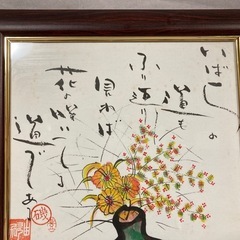 いばらの
道も
ふり返り
見れば
花が咲いてる
道であ